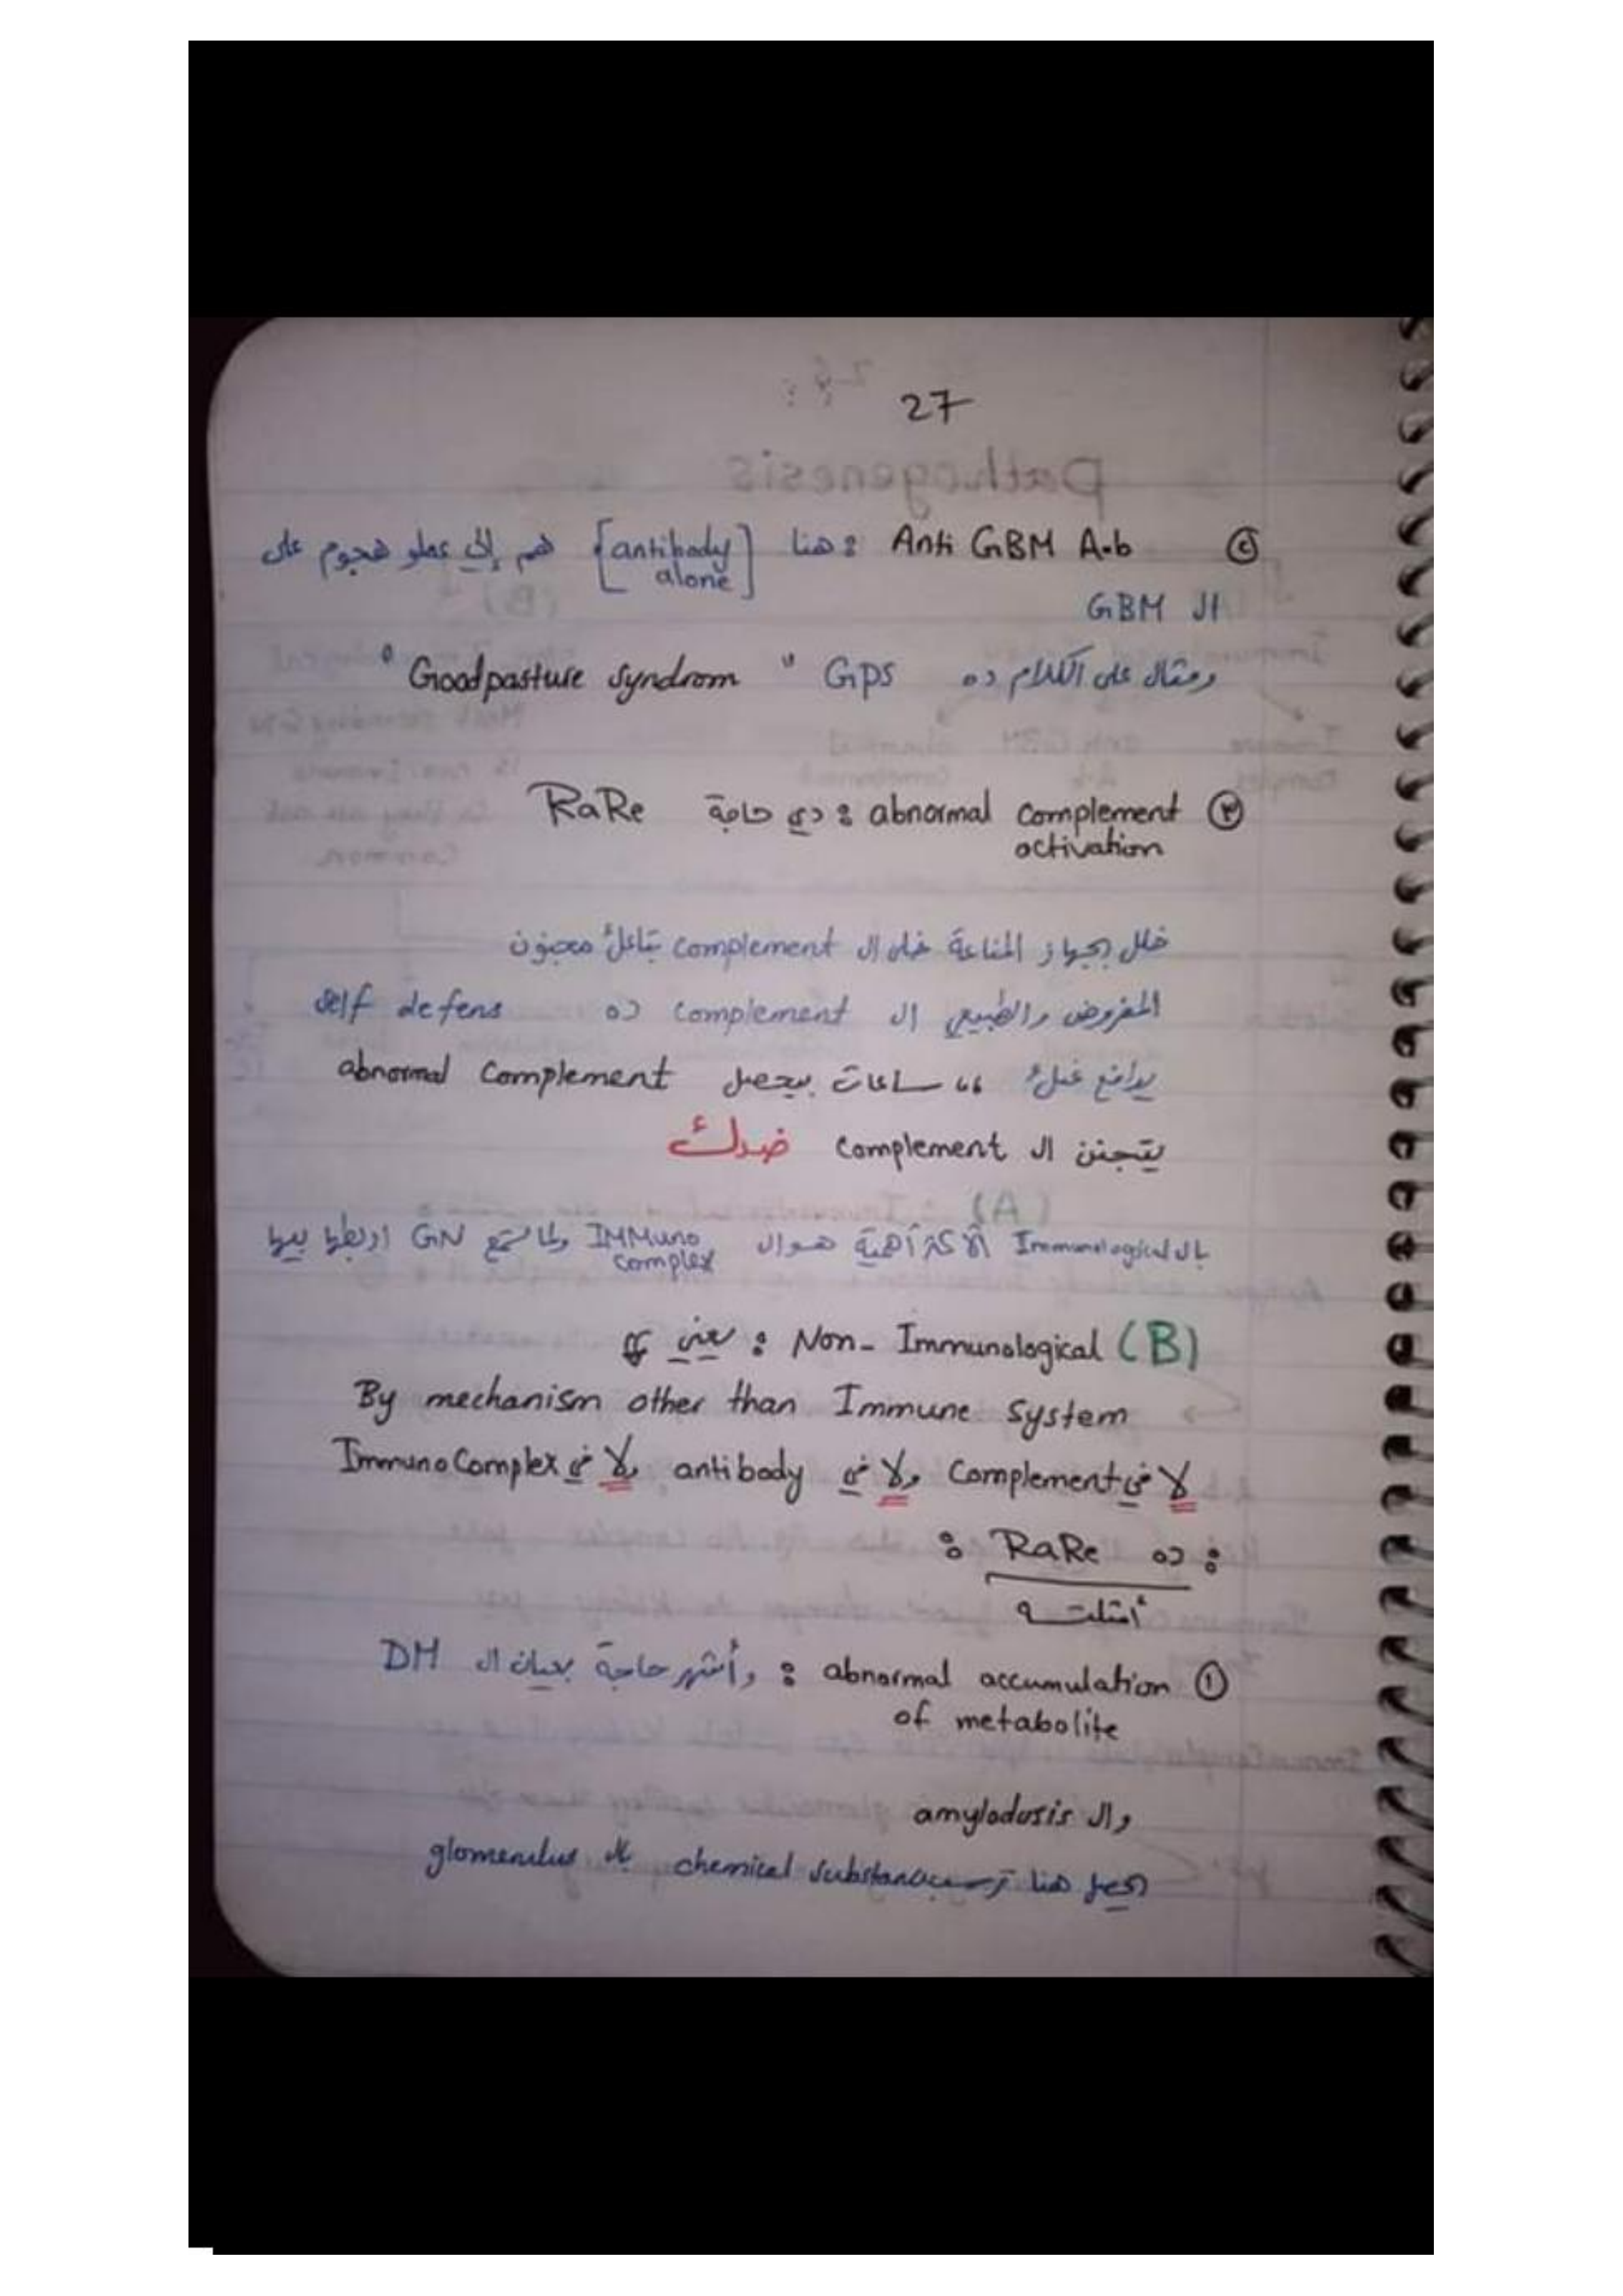 27
② Anti GBM A.b : هنا [antibody alone] هم إلي عملو هجوم على
ال GBM
ومثال على الكلام ده GPS " Goodpasture syndrom "
③ abnormal complement activation : دي حاجة RaRe
خلل بجهاز المناعة خلى ال complement بتاعك مجنون
المفروض والطبيعي ال complement ده self defens
يدافع عنك ،، ساعات بيحصل abnormal complement
يتجنن ال complement ضدك
بال Immunological الأكثر أهمية هو ال IMMuno complex ولما تسمع GN اربطها بيها
(B) Non-Immunological : يعني
By mechanism other than Immune system
لا في Complement ولا في antibody ولا في ImmunoComplex
: ده RaRe :
أمثلته
① abnormal accumulation of metabolite : وأشهر حاجة بعيان ال DM
وال amylodosis
بحصل هنا ترسيب chemical substance بال glomerulus